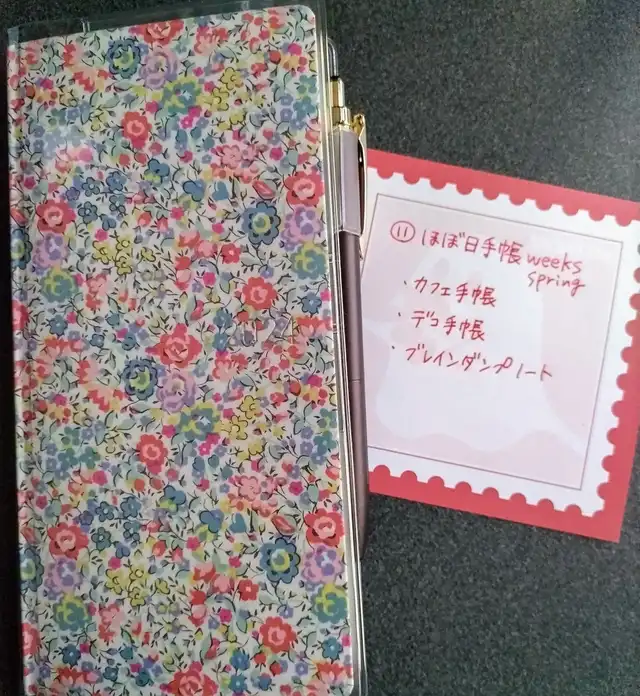 2024
⑪ ほぼ日手帳 weeks
spring
・カフェ手帳
・デコ手帳
・ブレインダンプノート